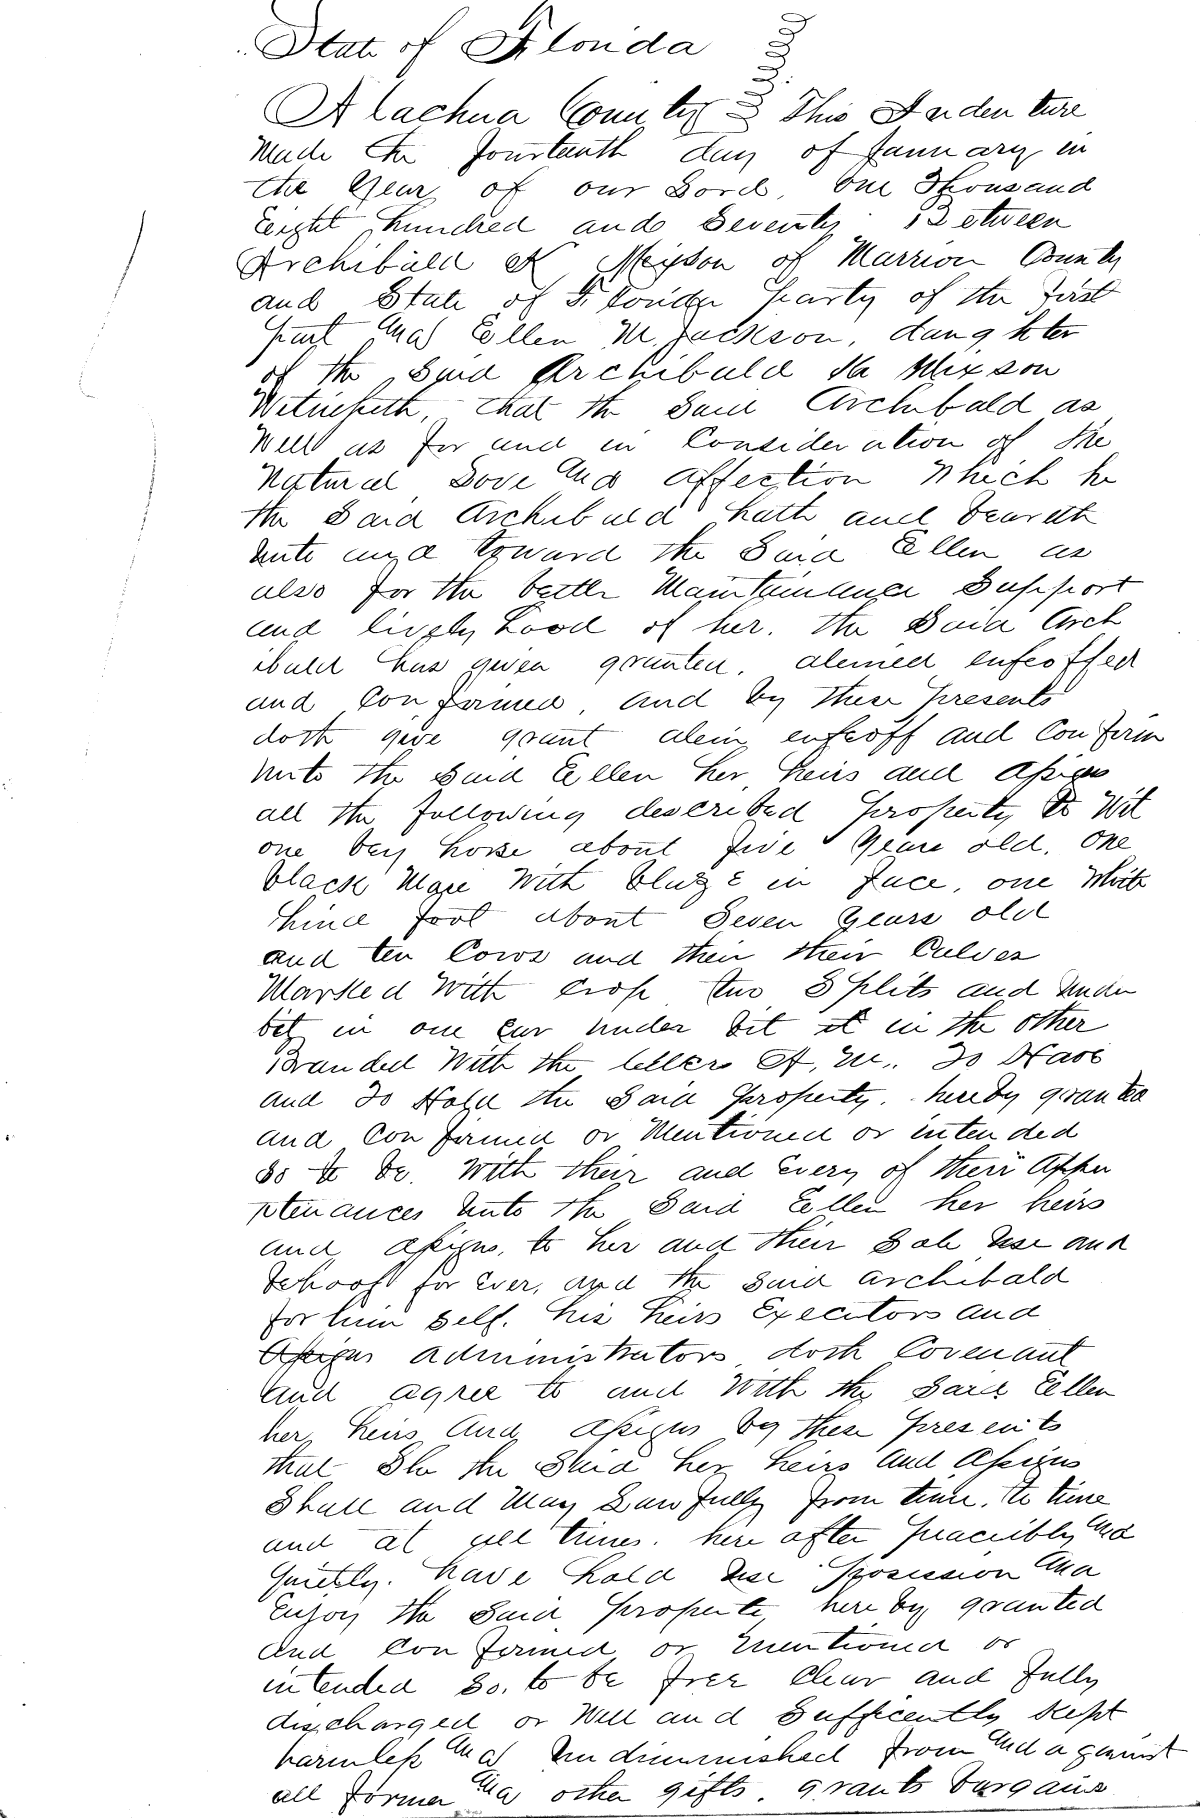 State of Florida
Alachua County } This Inden ture
Made the fourteenth day of January in
the Year of our Lord, one Thousand
Eight hundred and Seventy. Between
Archibald K Mixson of Marrion County
and State of Florida party of the first
part and Ellen M. Jackson, daughter
of the Said Archibald K Mixson
Witnesseth, that the Said Archibald as
Well as for and in Consideration of the
Natural Love and affection Which he
the Said Archibald hath and beareth
unto and toward the Said Ellen as
also for the better Maintainance Support
and lively hood of her. the Said Arch
ibald has given granted, aleined enfeoffed
and Confirmed, and by these presents
doth give grant alein enfeoff and Confirm
unto the Said Ellen her heirs and assigns
all the following described property to Wit
one bay horse about five years old. one
black Mare With blaze in face, one White
hind foot about Seven years old
and ten Cows and their their Calves
Marked With crop two Splits and under
bit in one ear under bit it in the other
Branded With the letters A, M.. To Have
and To Hold the Said property. hereby granted
and Con firmed or Mentioned or intended
So to be. With their and every of their Appu
rtenances unto the Said Ellen her heirs
and assigns, to her and their Sole use and
behoof for ever, and the Said archibald
for him Self. his heirs Executors and
Assigns administrators doth Covenant
and agree to and With the Said Ellen
her heirs and assigns by these presents
that She the Said her heirs and assigns
Shall and May Lawfully from time. to time
and at all times. here after peacibly and
quietly. have hold use possession and
Enjoy the Said property here by granted
and Con firmed or mentioned or
intended So. to be free Clear and fully
discharged or Well and Sufficently Kept
harmless and un diminished from and against
all former and other gifts. grants bargains